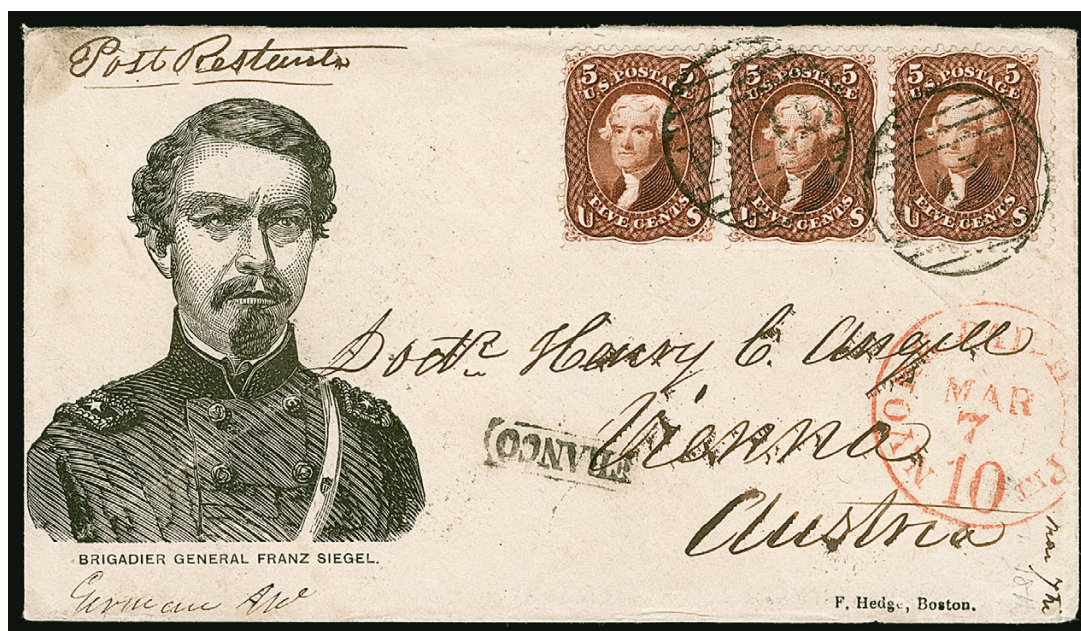 Post Restante
5 U.S. POSTAGE 5
U FIVE CENTS S
5 U.S. POSTAGE 5
U FIVE CENTS S
5 U.S. POSTAGE 5
U FIVE CENTS S
Doctr Henry C. Angell
Vienna
Austria
FRANCO
NEW YORK
MAR
7
10
BRIGADIER GENERAL FRANZ SIEGEL.
German
F. Hedge, Boston.
Mar 7th